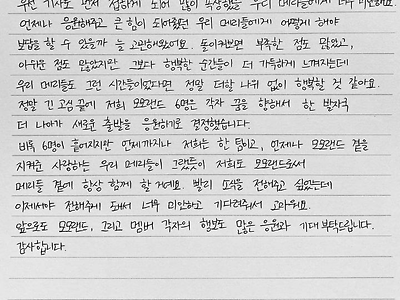 우선 기사로 먼저 접하게 되어 많이 속상했을 우리 메리들에게 너무 미안해요.
언제나 응원해주고 큰 힘이 되어줬던 우리 메리들에게 어떻게 해야
보답을 할 수 있을까 늘 고민해왔어요. 돌이켜보면 부족한 점도 많았고,
아쉬운 점도 많았지만 그보다 행복한 순간들이 더 가득하게 느껴지는데
우리 메리들도 그런 시간들이었다면 정말 더할 나위 없이 행복할 것 같아요.
정말 긴 고심 끝에 저희 모모랜드 6명은 각자 꿈을 향해서 한 발자국
더 나아가 새로운 출발을 응원하기로 결정했습니다.
비록 6명이 흩어지지만 언제까지나 저희는 한 팀이고, 언제나 모모랜드 곁을
지켜준 사랑하는 우리 메리들이 그랬듯이 저희도 모모랜드로써
메리들 곁에 항상 함께 할 거예요. 빨리 소식을 전해주고 싶었는데
이제서야 전해주게 돼서 너무 미안하고 기다려줘서 고마워요.
앞으로도 모모랜드, 그리고 멤버 각자의 행보도 많은 응원과 기대 부탁드립니다.
감사합니다.